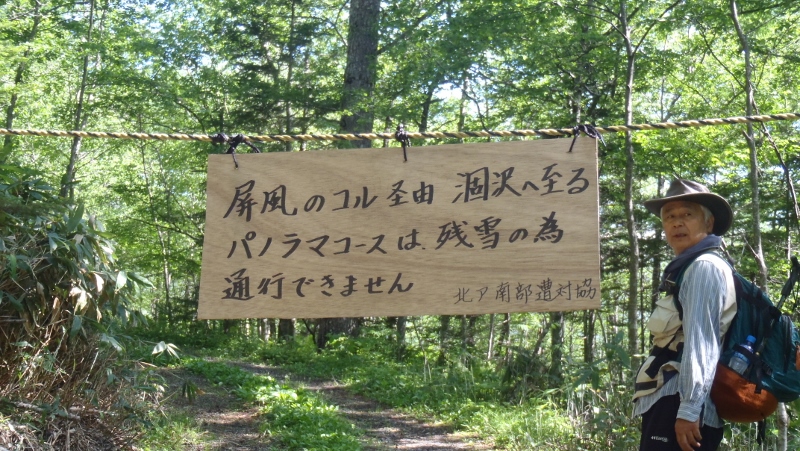 屏風のコル 圣由 涸沢へ至る
パノラマコースは、残雪の為
通行できません
北ア南部遭対協